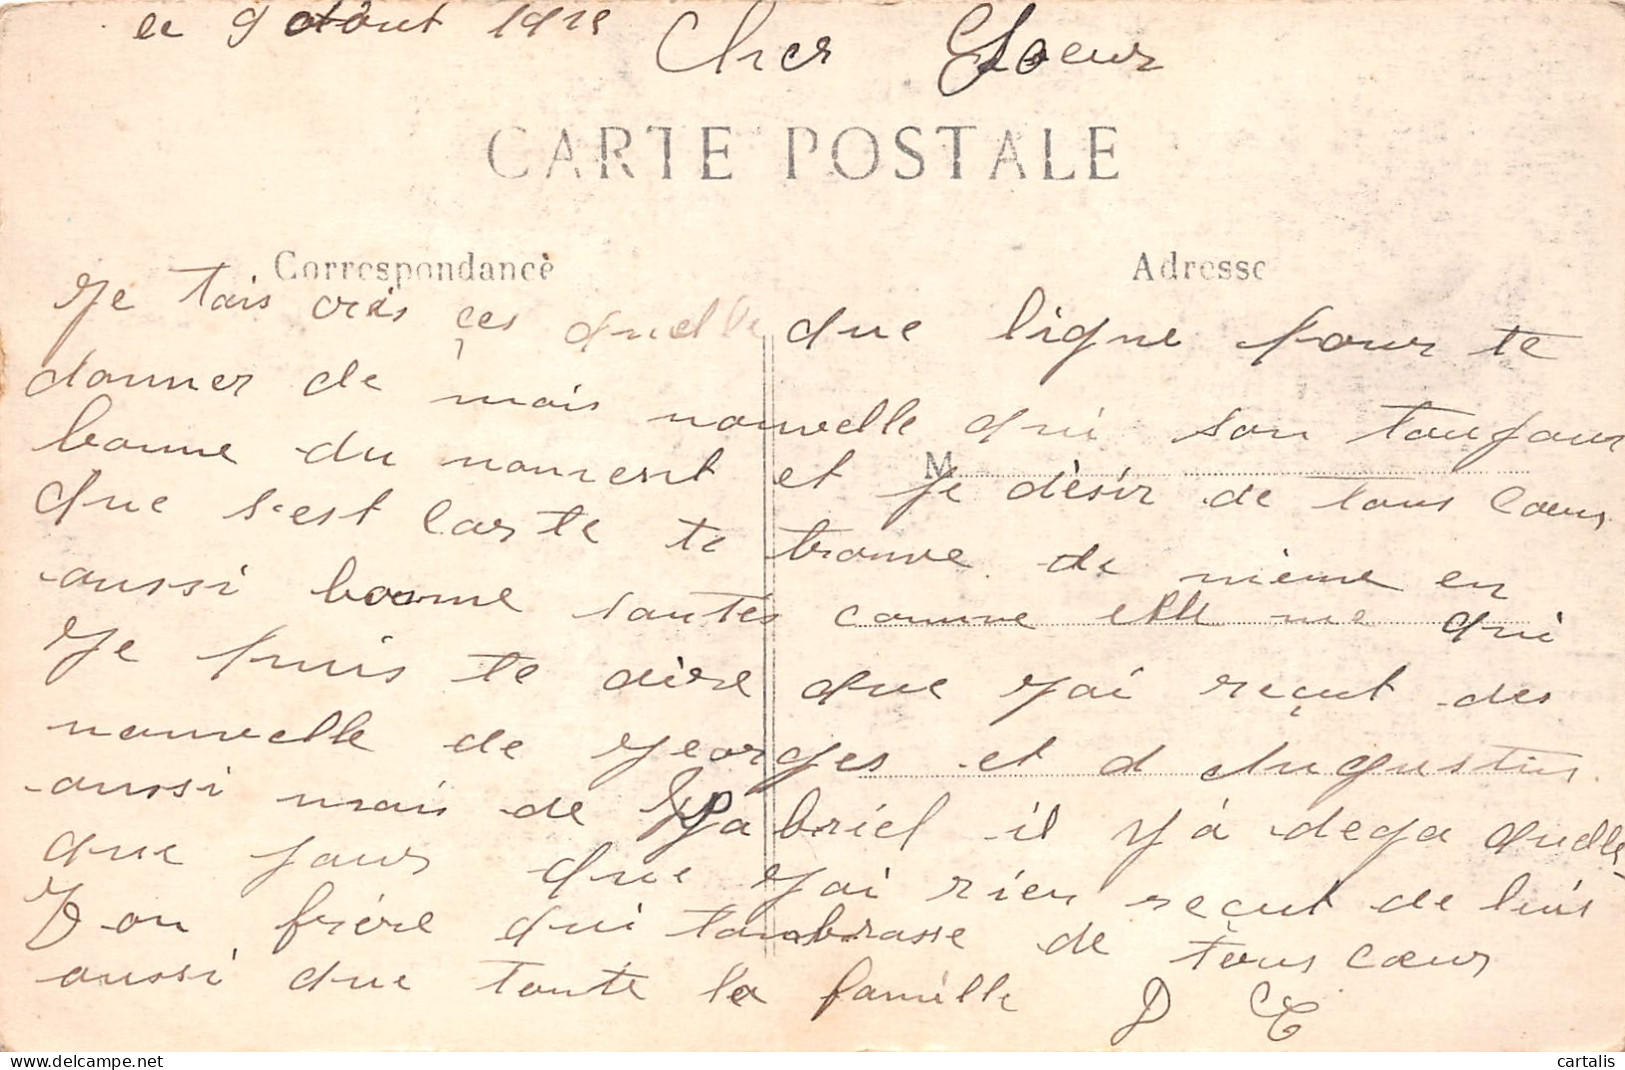 le 9 Aôut 191
Cher Soeur
CARTE POSTALE
Correspondance
Adresse
Je tais cris çes quelle que ligne pour te
donner de mais nouvelle qui son toujour
bonne du moment et je dèsir de tous Cœur
M
que s'est Carte te trouve de mème en
aussi bonne santés comme elle me qui
Je puis te dire que J'ai reçut des
nouvelle de Georges et d Augustin
aussi mais de Gabriel il y à dega quelle
que jour que J'ai rien reçut de luis
Ton frére qui tambrasse de tous cœur
aussi que toute la famille D C
cartalis